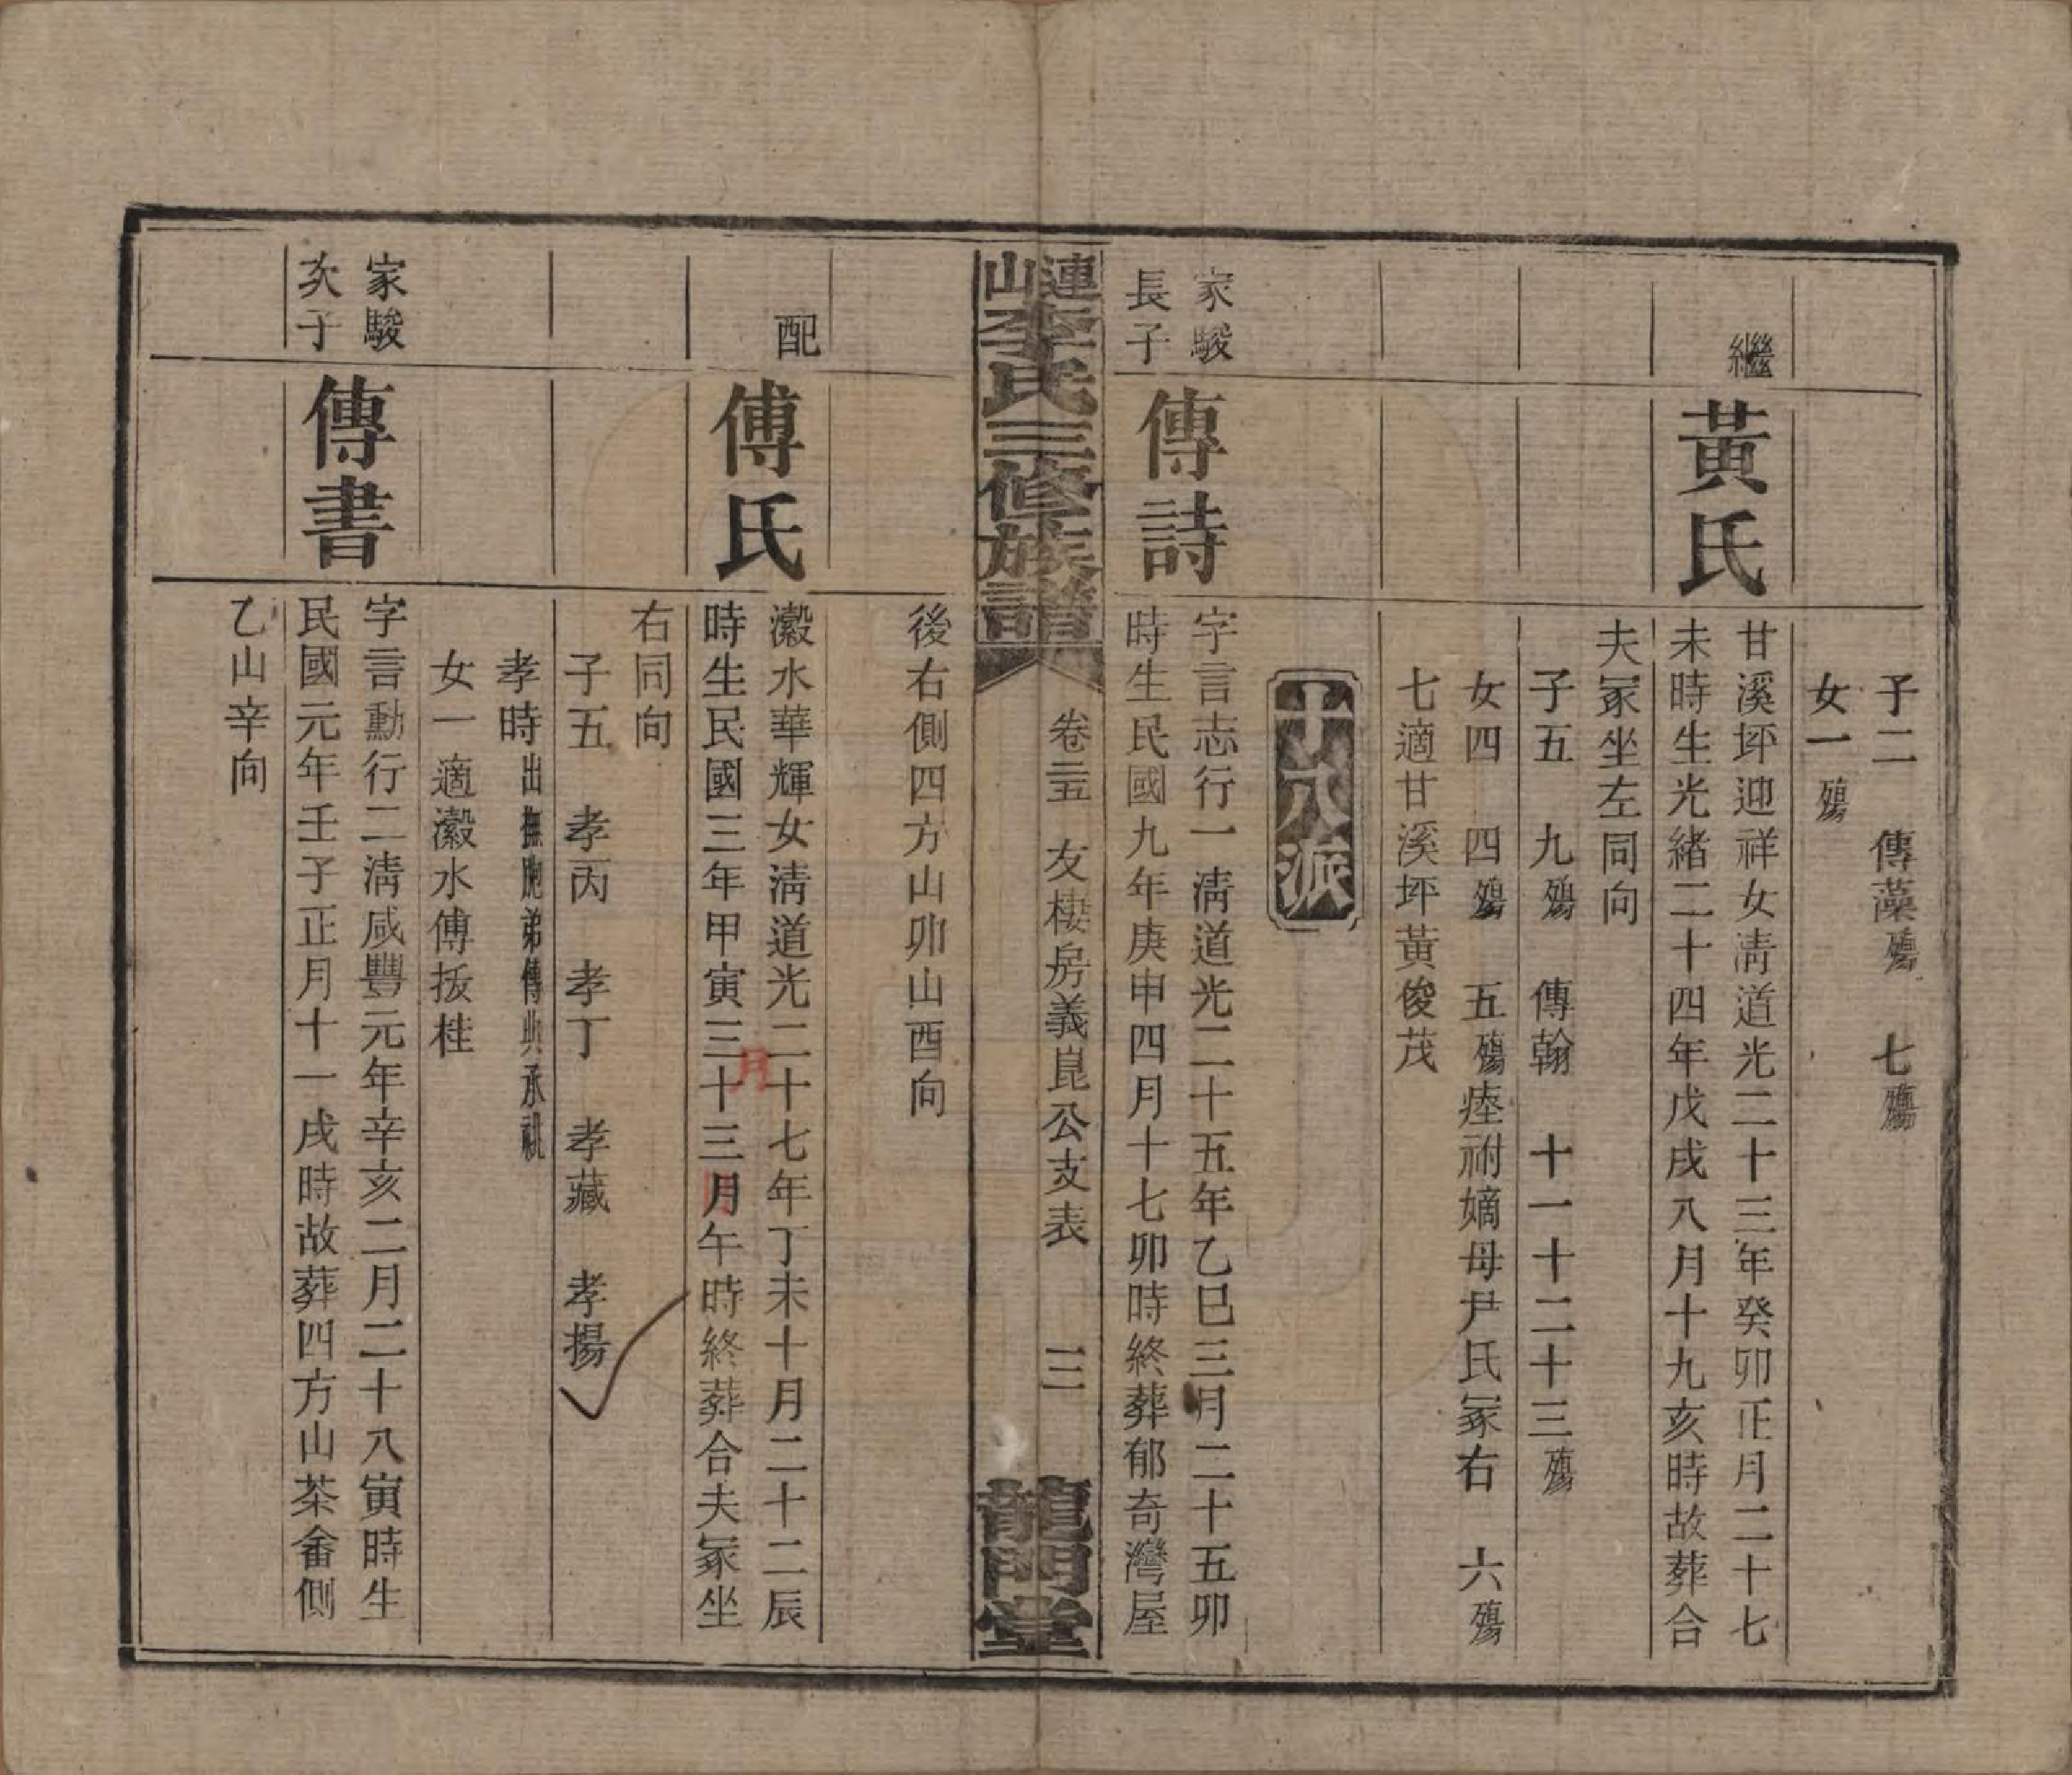 子二　傳藻殤　七殤
女一殤
繼
黃氏
甘溪坪迎祥女淸道光二十三年癸卯正月二十七
未時生光緒二十四年戊戌八月十九亥時故葬合
夫冢坐左同向
子五　九殤　傳翰　十一十二十三殤
女四　四殤　五殤瘞祔嫡母尹氏冢右　六殤
七適甘溪坪黃俊茂
十八派
家駿
長子
傳詩
字言志行一淸道光二十五年乙巳三月二十五卯
時生民國九年庚申四月十七卯時終葬郁奇灣屋
漣山李氏三修族譜
卷二五　友棲房義崑公支表　三
龍門堂
後右側四方山卯山酉向
配
傅氏
瀫水華輝女淸道光二十七年丁未十月二十二辰
時生民國三年甲寅三十三月午時終葬合夫冢坐
月
右同向
子五　孝丙　孝丁　孝藏　孝揚
孝時出撫胞弟傳典承祧
女一適瀫水傅扳桂
家駿
次子
傳書
字言勳行二淸咸豐元年辛亥二月二十八寅時生
民國元年壬子正月十一戌時故葬四方山茶畬側
乙山辛向